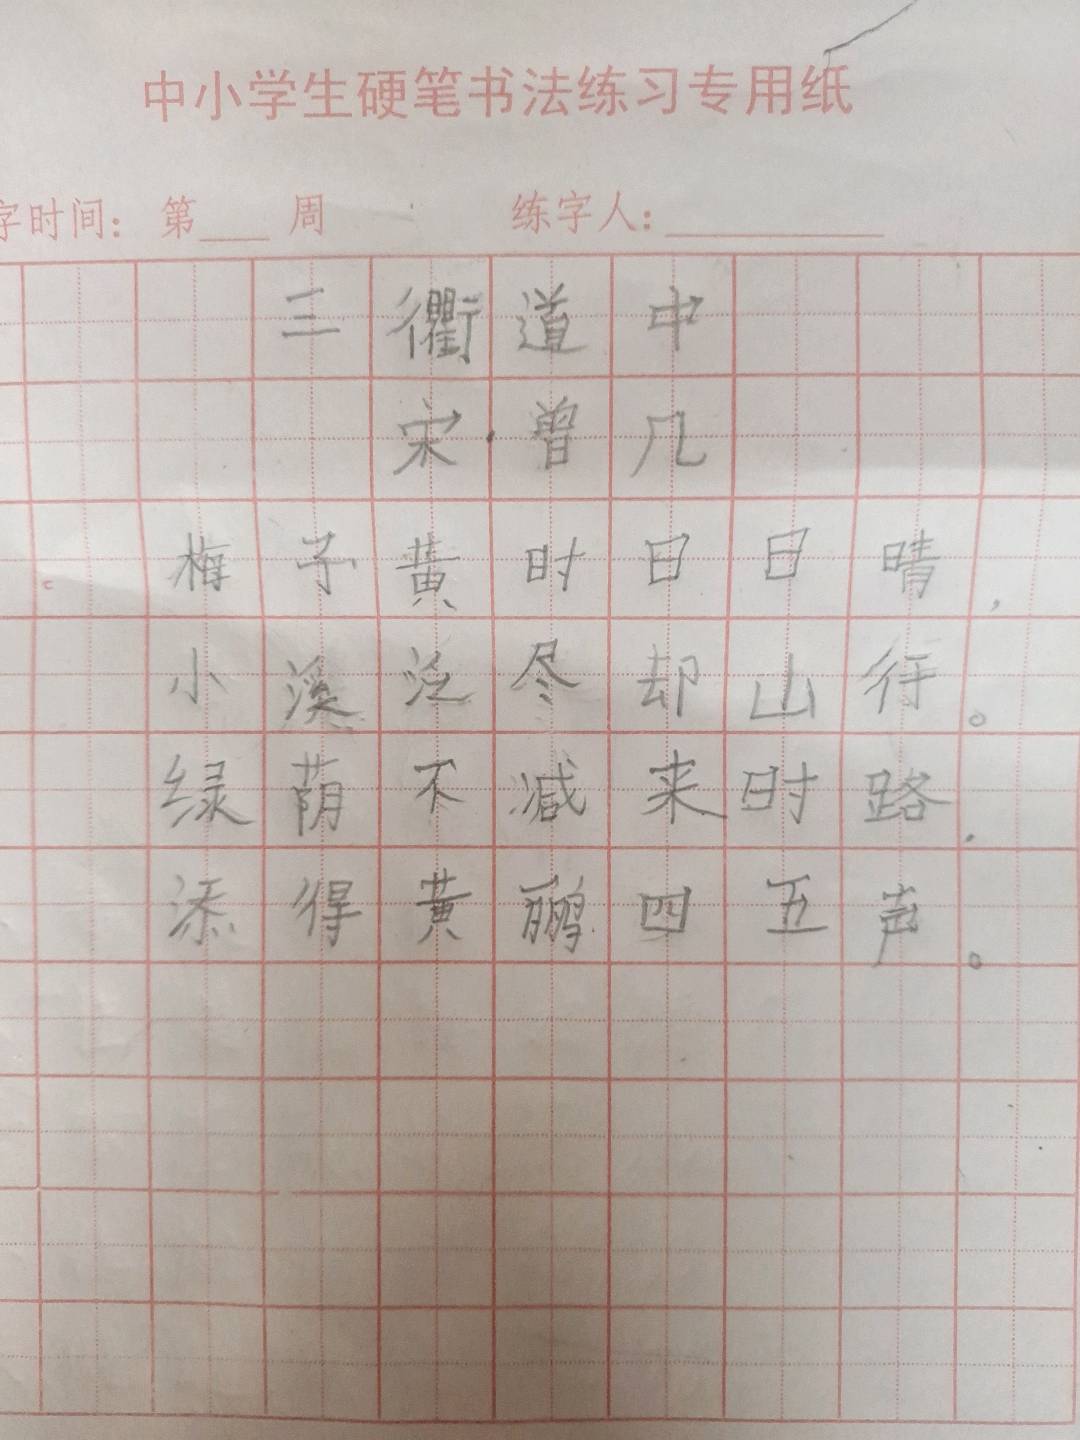 中小学生硬笔书法练习专用纸
字时间：第___周 练字人：_________
三衢道中
宋·曾几
梅子黄时日日晴，
小溪泛尽却山行。
绿荫不减来时路.
添得黄鹂四五声。